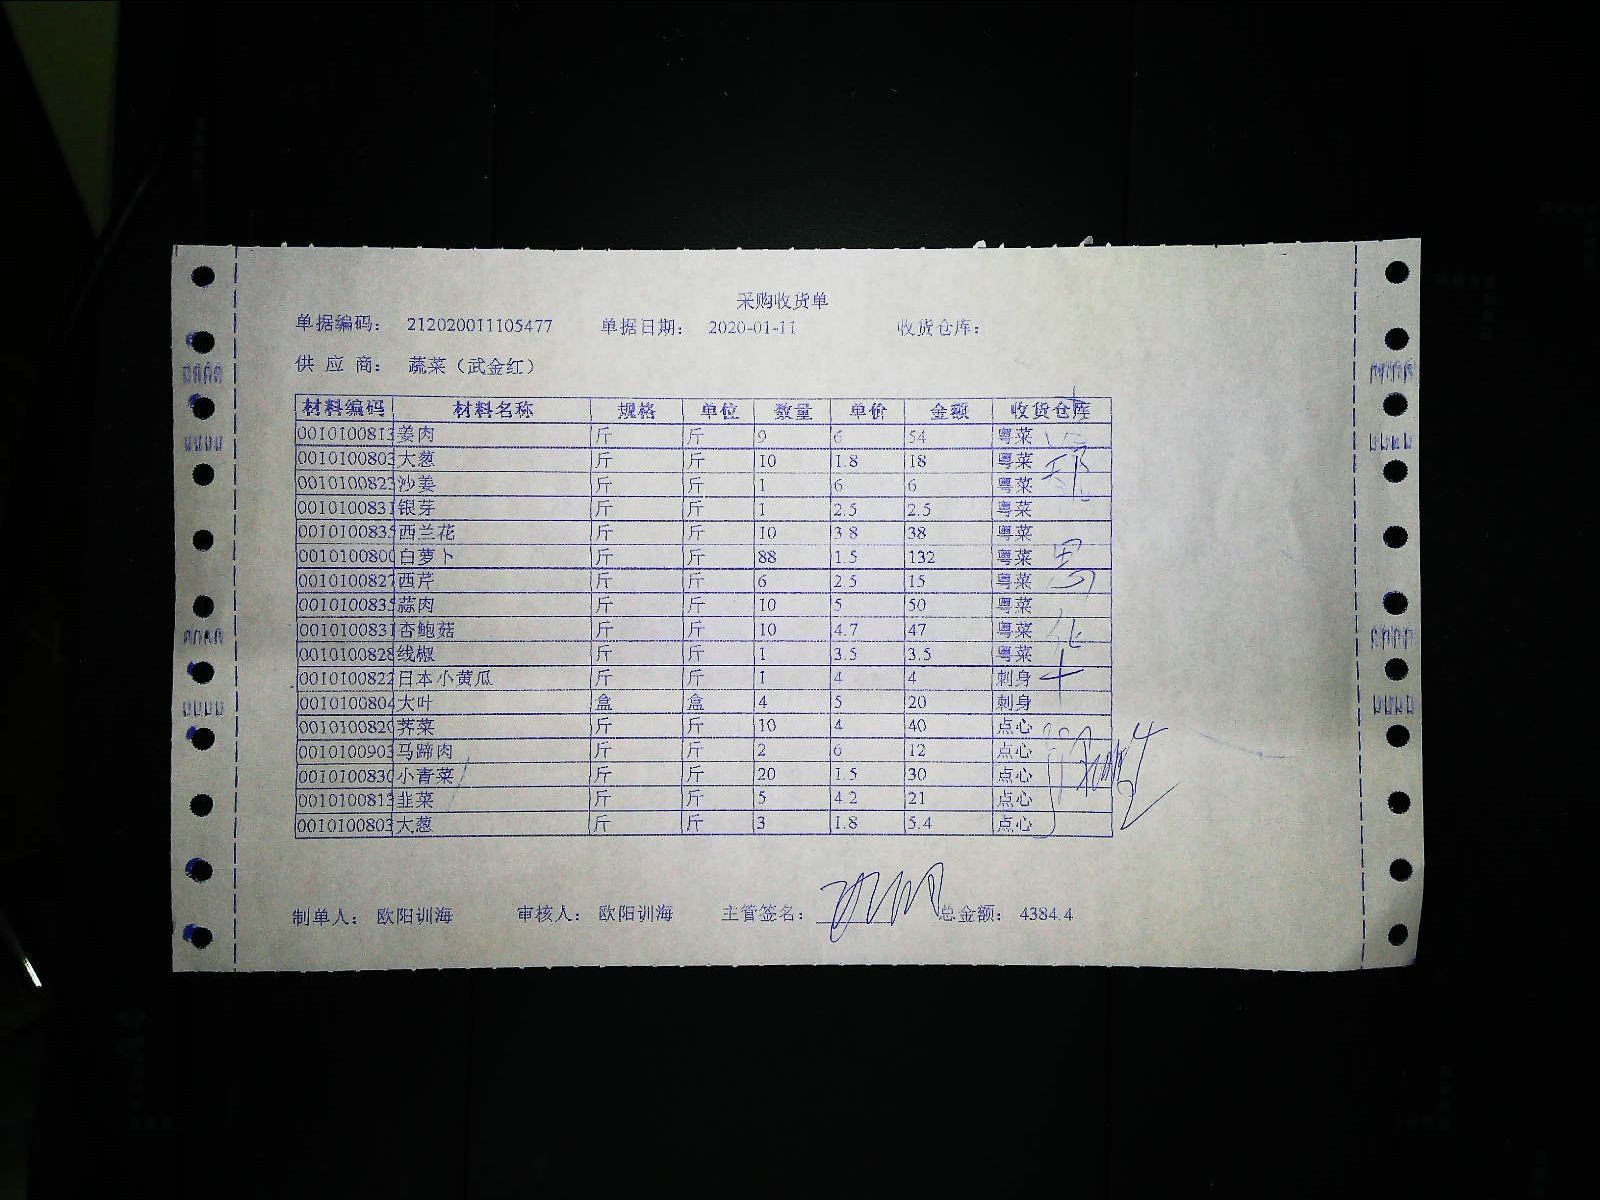 采购收货单
单据编码： 212020011105477 单据日期： 2020-01-11 收货仓库：
供 应 商： 蔬菜（武金红）
材料编码 材料名称 规格 单位 数量 单价 金额 收货仓库
0010100813 姜肉 斤 斤 9 6 54 粤菜
0010100803 大葱 斤 斤 10 1.8 18 粤菜
0010100823 沙姜 斤 斤 1 6 6 粤菜
0010100831 银芽 斤 斤 1 2.5 2.5 粤菜
0010100835 西兰花 斤 斤 10 3.8 38 粤菜
0010100800 白萝卜 斤 斤 88 1.5 132 粤菜
0010100827 西芹 斤 斤 6 2.5 15 粤菜
0010100835 蒜肉 斤 斤 10 5 50 粤菜
0010100831 杏鲍菇 斤 斤 10 4.7 47 粤菜
0010100828 线椒 斤 斤 1 3.5 3.5 粤菜
0010100822 日本小黄瓜 斤 斤 1 4 4 刺身
0010100804 大叶 盒 盒 4 5 20 刺身
0010100820 荠菜 斤 斤 10 4 40 点心
0010100903 马蹄肉 斤 斤 2 6 12 点心
0010100830 小青菜 斤 斤 20 1.5 30 点心
0010100813 韭菜 斤 斤 5 4.2 21 点心
0010100803 大葱 斤 斤 3 1.8 5.4 点心
制单人： 欧阳训海 审核人： 欧阳训海 主管签名： 总金额： 4384.4